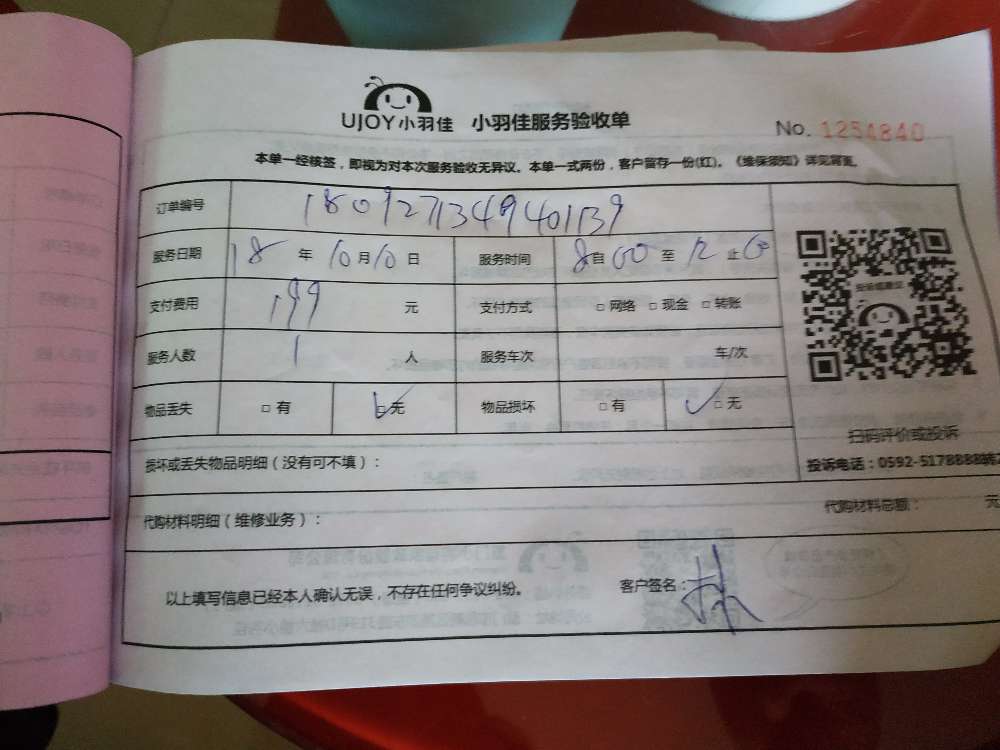 UJOY小羽佳 小羽佳服务验收单
No. 1254840
本单一经核签，即视为对本次服务验收无异议。本单一式两份，客户留存一份(红)。《维保须知》详见背面。
订单编号 1809271349401139
服务日期 18 年 10 月 10 日 服务时间 8 自 00 至 12 止 00
支付费用 199 元 支付方式 □ 网络 □ 现金 □ 转账
服务人数 1 人 服务车次 车/次
物品丢失 □ 有 □ 无 物品损坏 □ 有 □ 无
扫码评价或投诉
损坏或丢失物品明细（没有可不填）：
投诉电话：0592-5178888转
代购材料明细（维修业务）： 代购材料总额： 元
以上填写信息已经本人确认无误，不存在任何争议纠纷。 客户签名：林